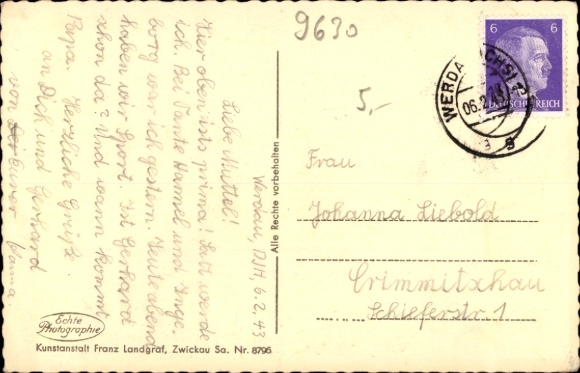 9630
5,-
6 6
DEUTSCHES REICH
WERDAU (SACHS)
06.2.43
g
Werdau, DJH, 6.2.43
Liebe Muttel!
Hier oben ists prima! Satt werde
ich. Bei Tante Hamel und Inge,
borg war ich gestern. Heute abend
haben wir Sport. Ist Gerhard
schon da? Und wann kommt
Papa. Herzliche Grüße
an Dich und Gerhard
von Eurer
Alle Rechte vorbehalten
Frau
Johanna Liebold
Crimmitschau
Schieferstr. 1
Echte
Photographie
Kunstanstalt Franz Landgraf, Zwickau Sa. Nr. 8796